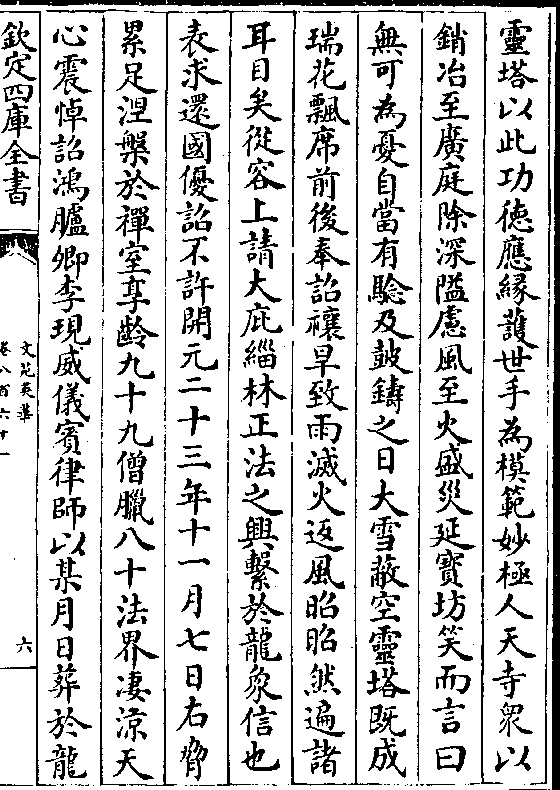 靈塔以此功徳應縁䕶世手為模範妙極人天寺衆以
銷冶至廣庭除深隘慮風至火盛災延寳坊笑而言曰
無可為憂自當有驗及鼓鑄之日大雪蔽空靈塔既成
瑞花飄席前後奉詔禳旱致雨滅火返風昭昭然遍諸
耳目矣從容上請大庇緇林正法之興繫於龍象信也
表求還國優詔不許開元二十三年十一月七日右脅
累足涅槃於禪室享齡九十九僧臘八十法界凄涼天
心震悼詔鴻臚卿李現威儀賓律師以某月日葬於龍
欽定四庫全書
文苑英華
卷八百六十一
六